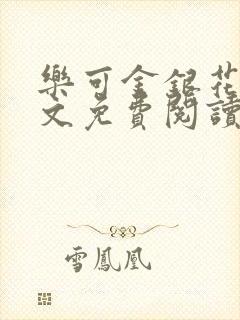 樂可金銀花
文免費閱讀
雪鳳凰